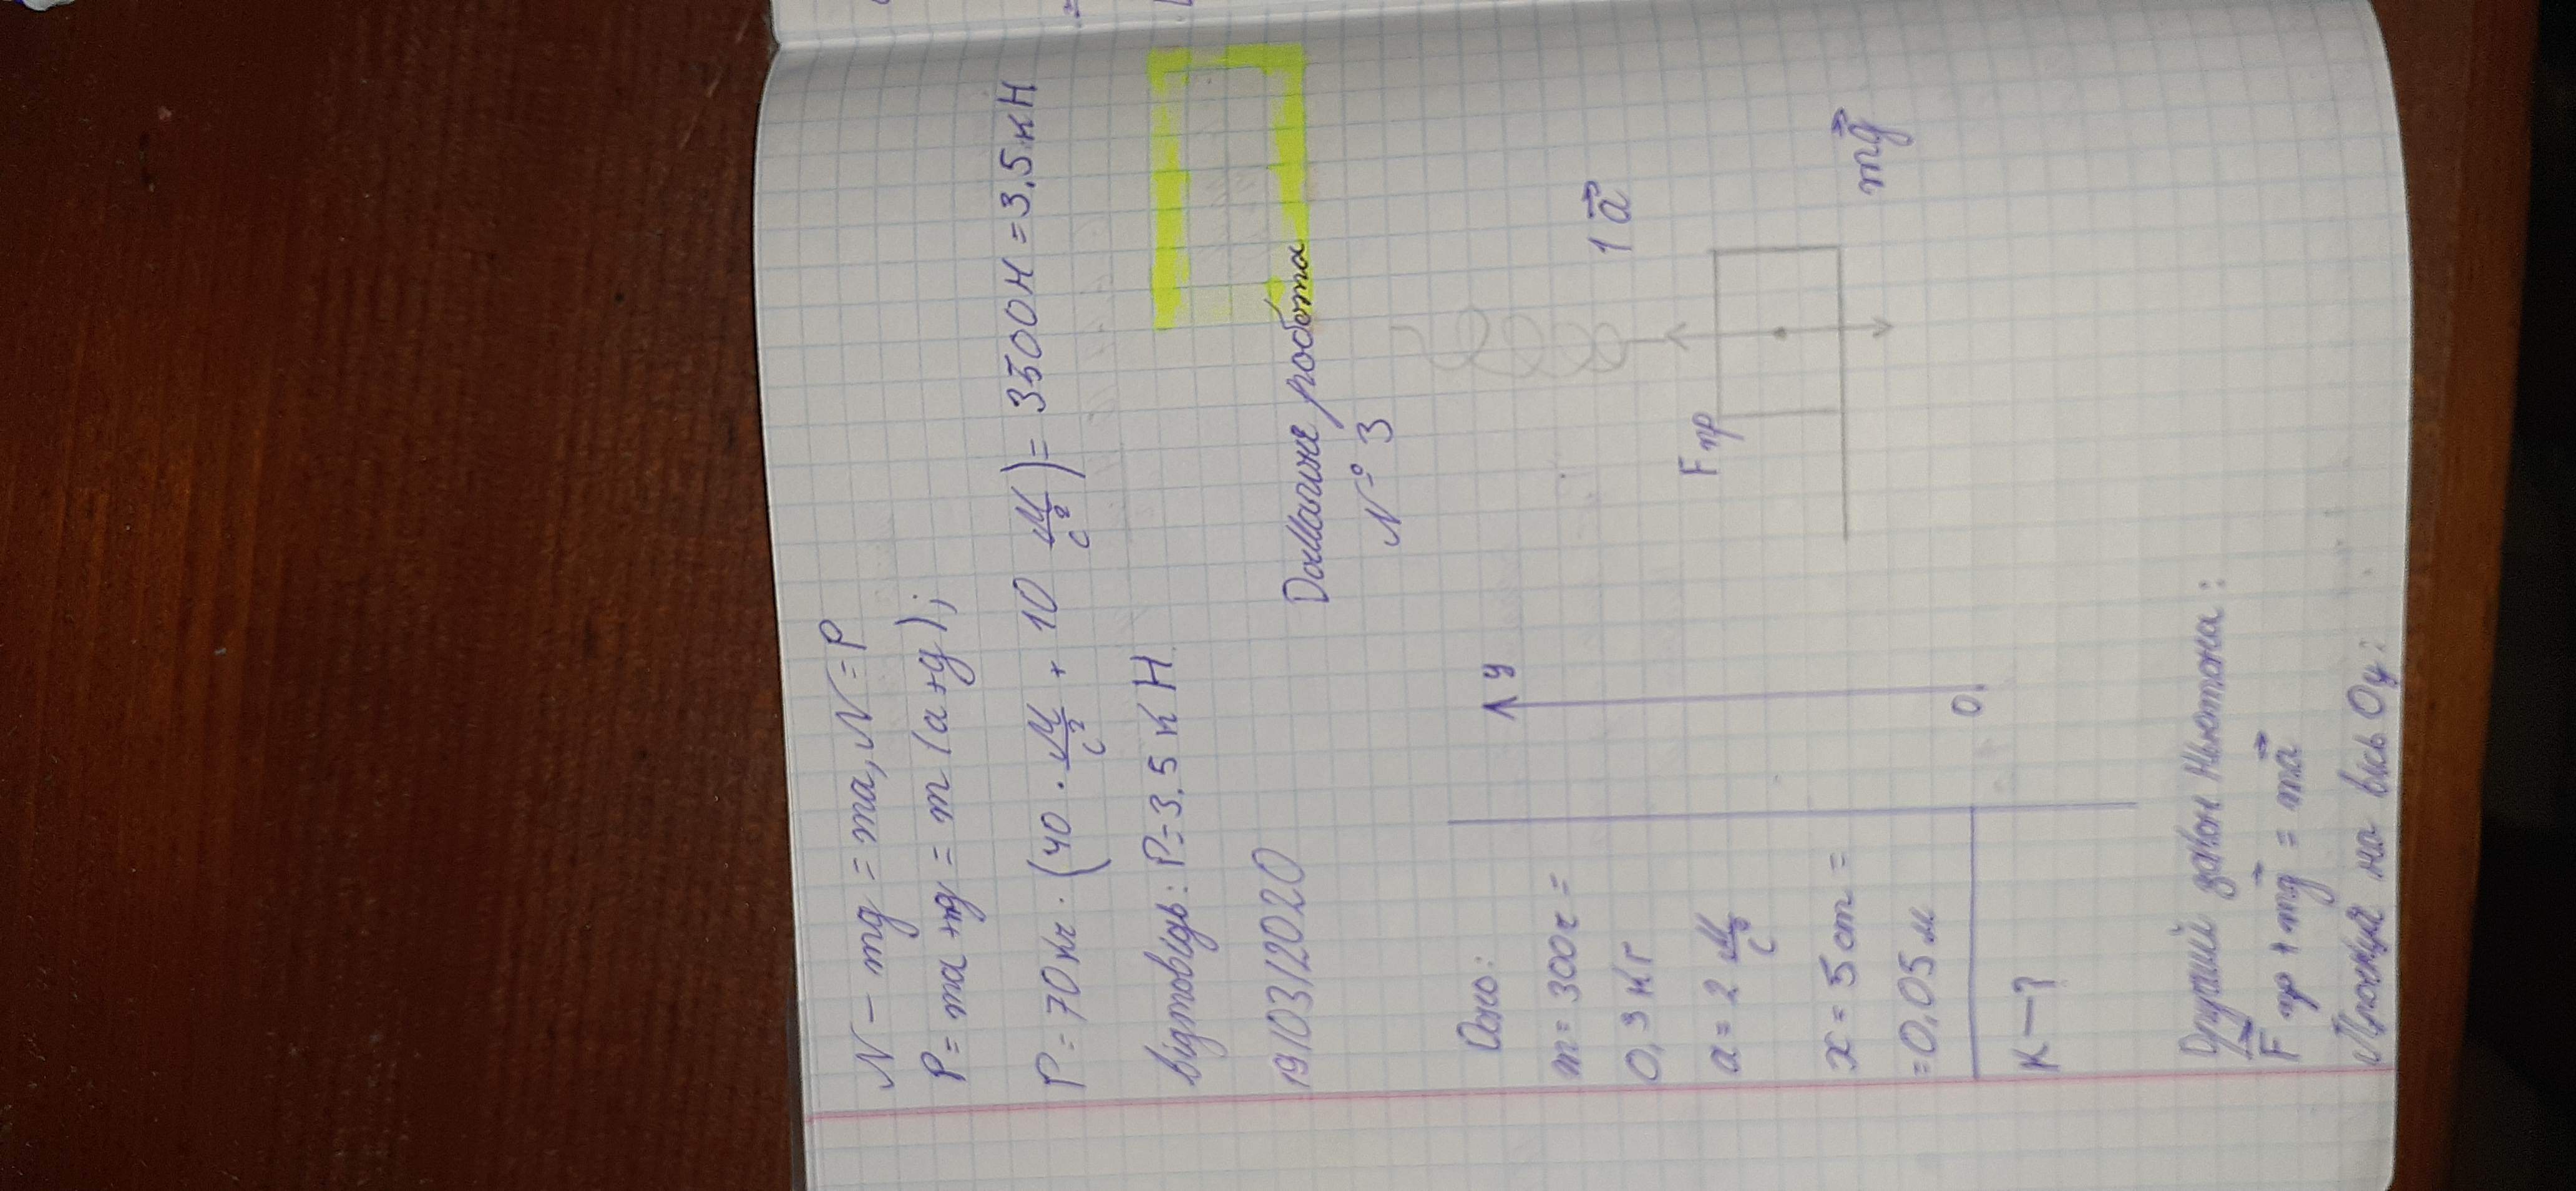 N - mg = ma, N = P
P = ma + mg = m (a + g);
P = 70 кг · (40 · м/с² + 10 м/с²) = 3500 Н = 3,5 кН
відповідь: P = 3,5 кН
19/03/2020
Домашнє робота
N° 3
Дано:
m = 300 г =
0,3 кг
a = 2 м/с²
x = 5 cm =
= 0,05 м
K - ?
y
0
F пр
1 a⃗
mg⃗
Другий закон Ньютона:
F⃗ пр + mg⃗ = ma⃗
Проекція на вісь Oy: